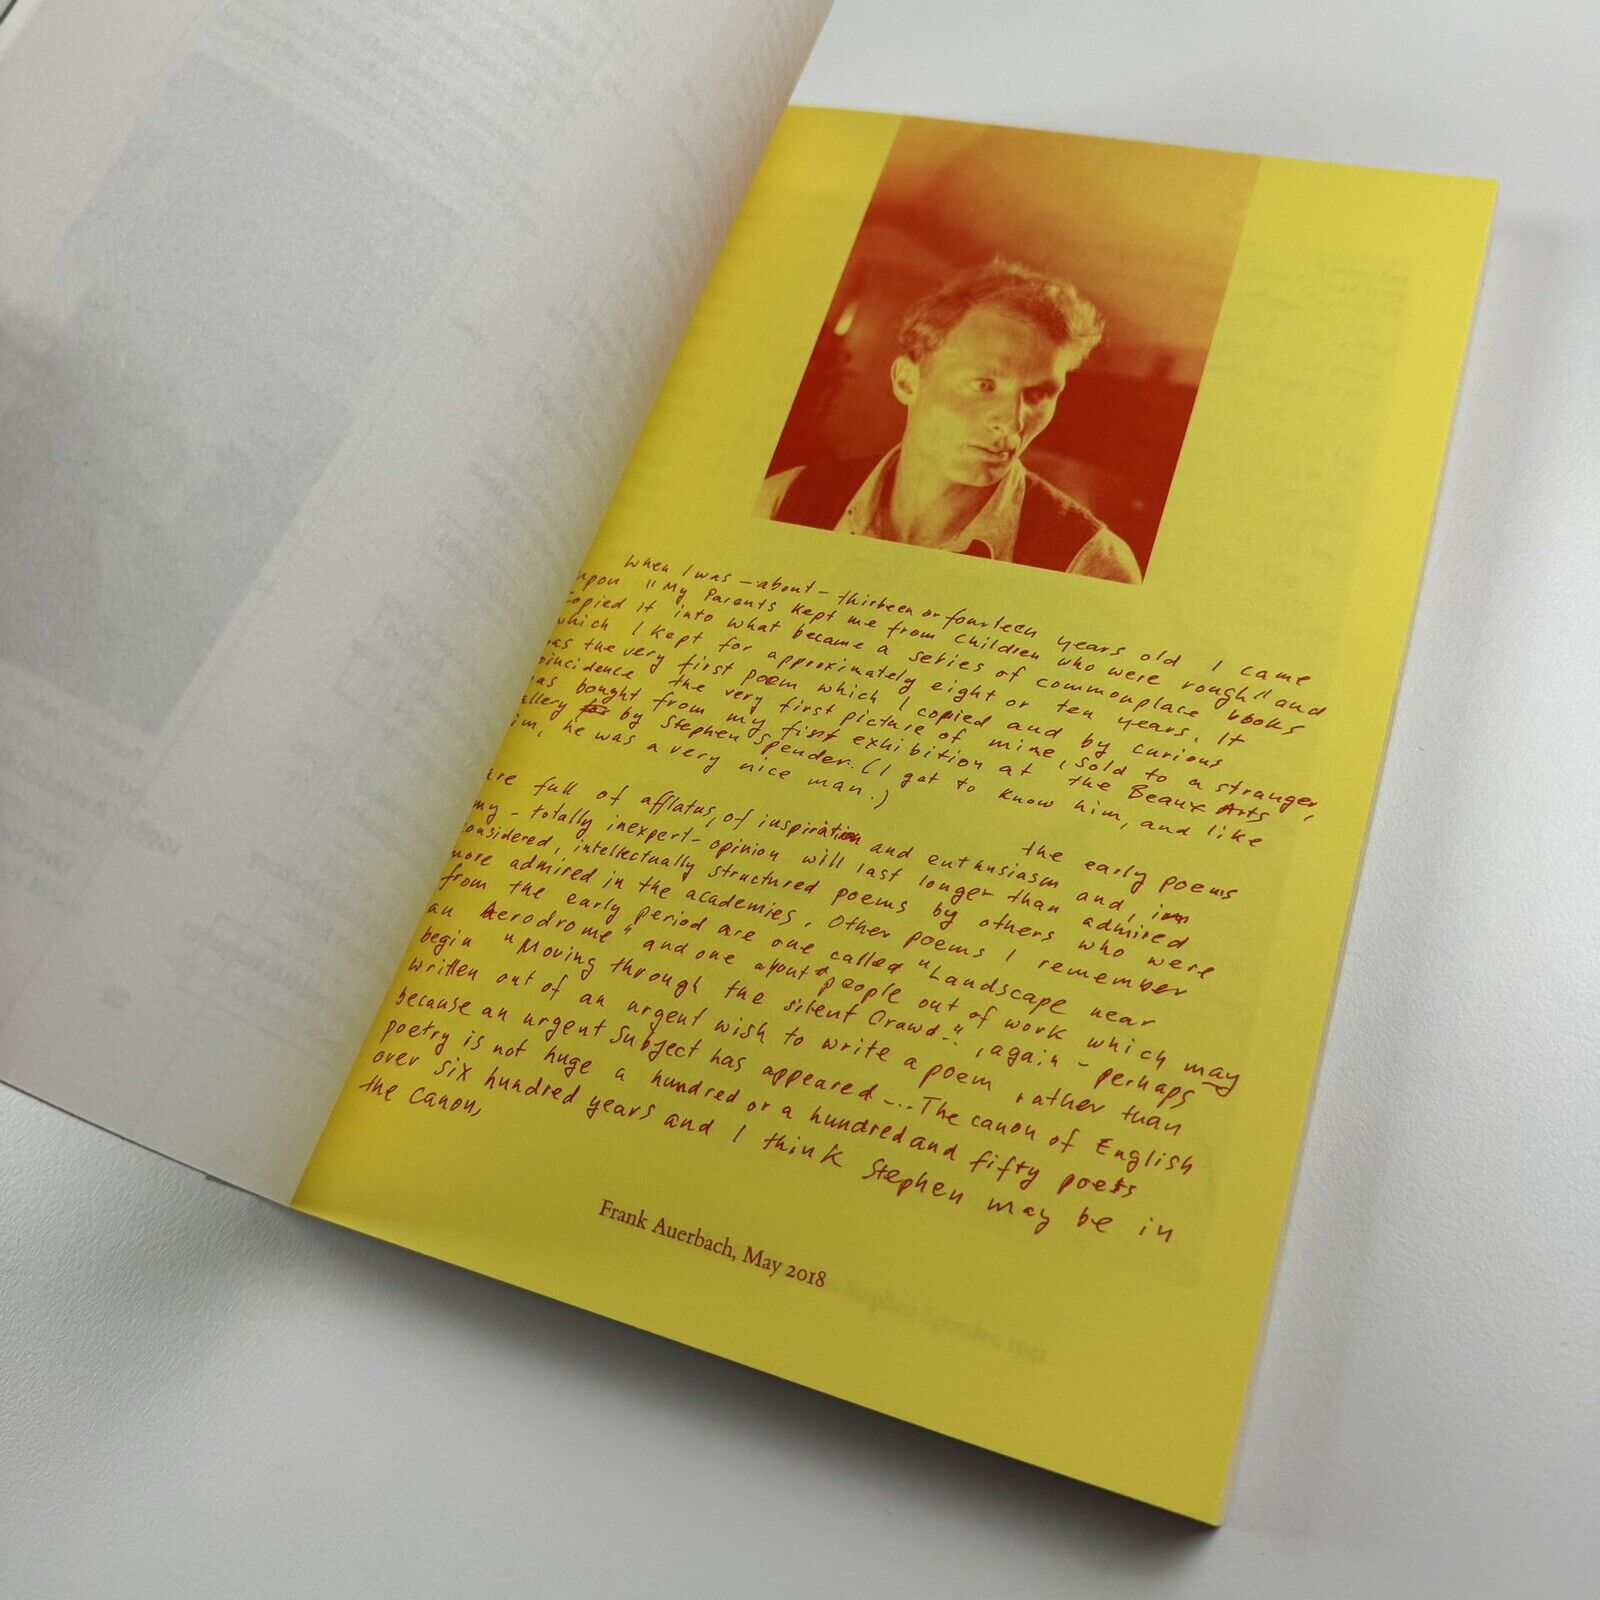 When I was – about – thirteen or fourteen years old I came
upon "My Parents kept me from children who were rough" and
copied it into what became a series of commonplace books
which I kept for approximately eight or ten years. It
was the very first poem which I copied and by curious
oincidence the very first picture of mine, sold to a stranger,
was bought from my first exhibition at the Beaux Arts
allery by Stephen Spender. (I got to know him, and like
im, he was a very nice man.)
the early poems
are full of afflatus, of inspiration and enthusiasm and, in
my – totally inexpert – opinion will last longer than admired
considered, intellectually structured poems by others who were
more admired in the academies. Other poems I remember
from the early period are one called "Landscape near
an Aerodrome" and one about people out of work which may
begin "Moving through the silent Crowd –", again – perhaps
written out of an urgent wish to write a poem rather than
because an urgent subject has appeared –... The canon of English
poetry is not huge a hundred or a hundred and fifty poets
over six hundred years and I think Stephen may be in
the canon,
Frank Auerbach, May 2018